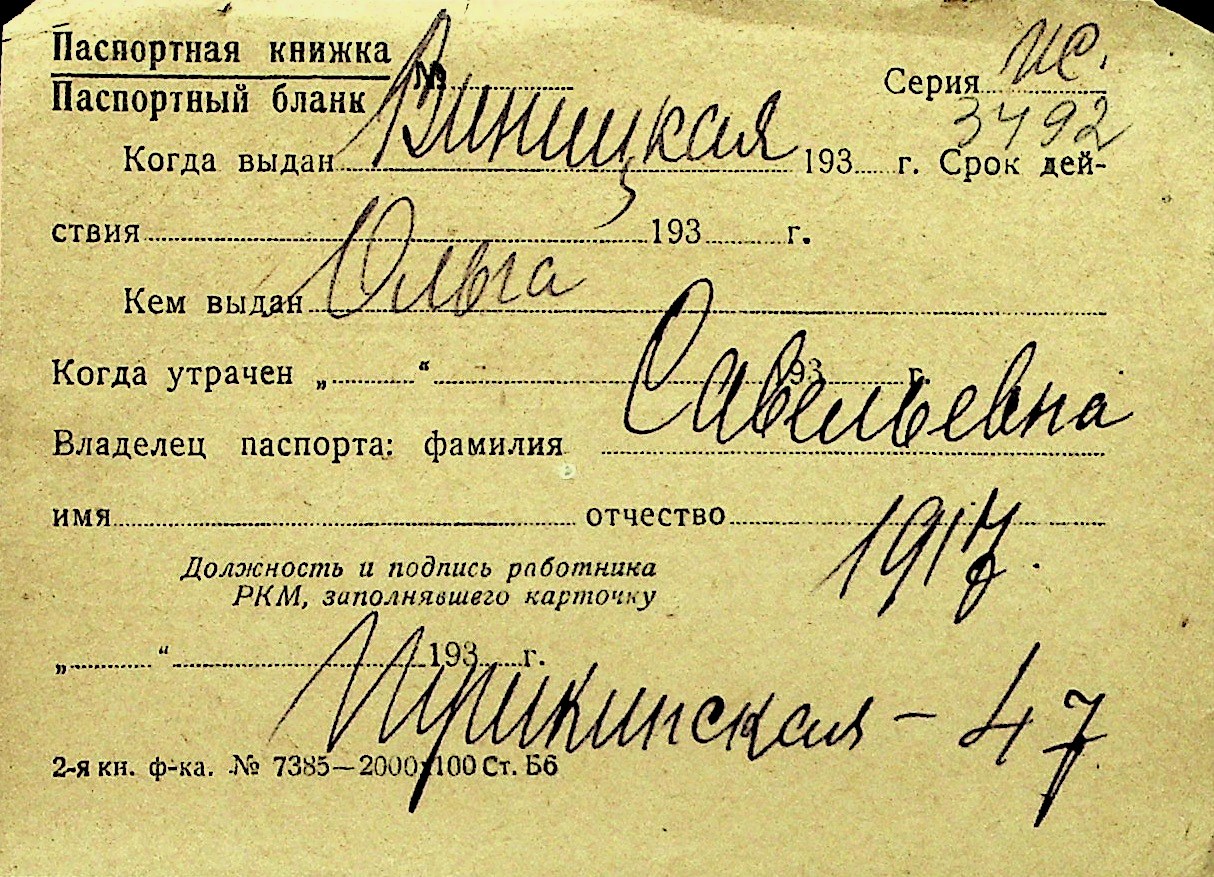 Паспортная книжка
Паспортный бланк № Серия ИС.
3492
Когда выдан Виницкая 193 г. Срок дей-
ствия 193 г.
Кем выдан Ольга
Когда утрачен „ “ 193 г.
Савельевна
Владелец паспорта: фамилия
имя отчество
1917.
Должность и подпись работника
РКМ, заполнявшего карточку
„ “ 193 г.
47
2-я кн. ф-ка. № 7385—2000х100 Ст. Б6